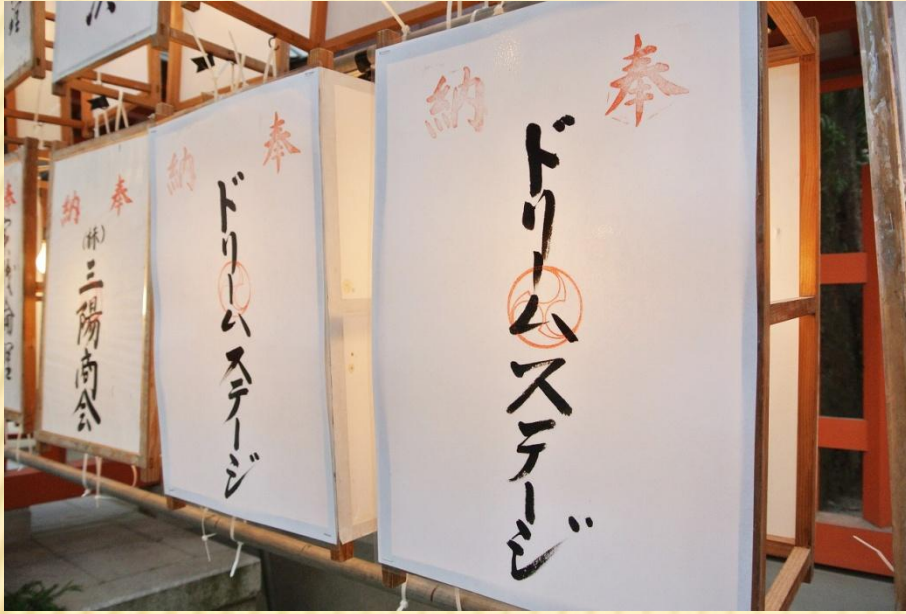 奉納
ドリームステージ
奉納
ドリームステージ
奉納
(株)三陽商会